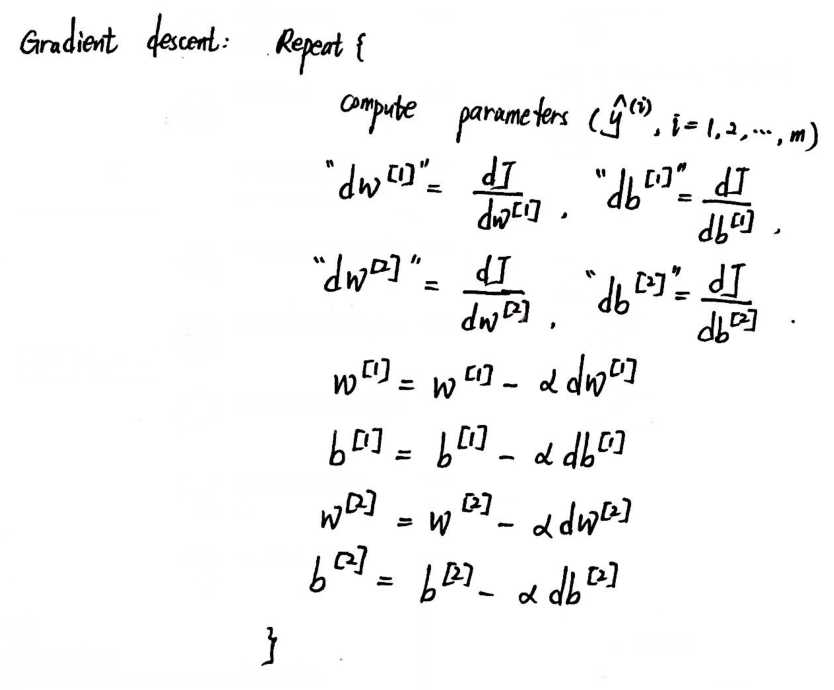 Gradient descent: Repeat {
compute parameters (ŷ^(i), i=1,2,...,m)
"dw^[1]" = dJ/dw^[1], "db^[1]" = dJ/db^[1],
"dw^[2]" = dJ/dw^[2], "db^[2]" = dJ/db^[2].
w^[1] = w^[1] - α dw^[1]
b^[1] = b^[1] - α db^[1]
w^[2] = w^[2] - α dw^[2]
b^[2] = b^[2] - α db^[2]
}